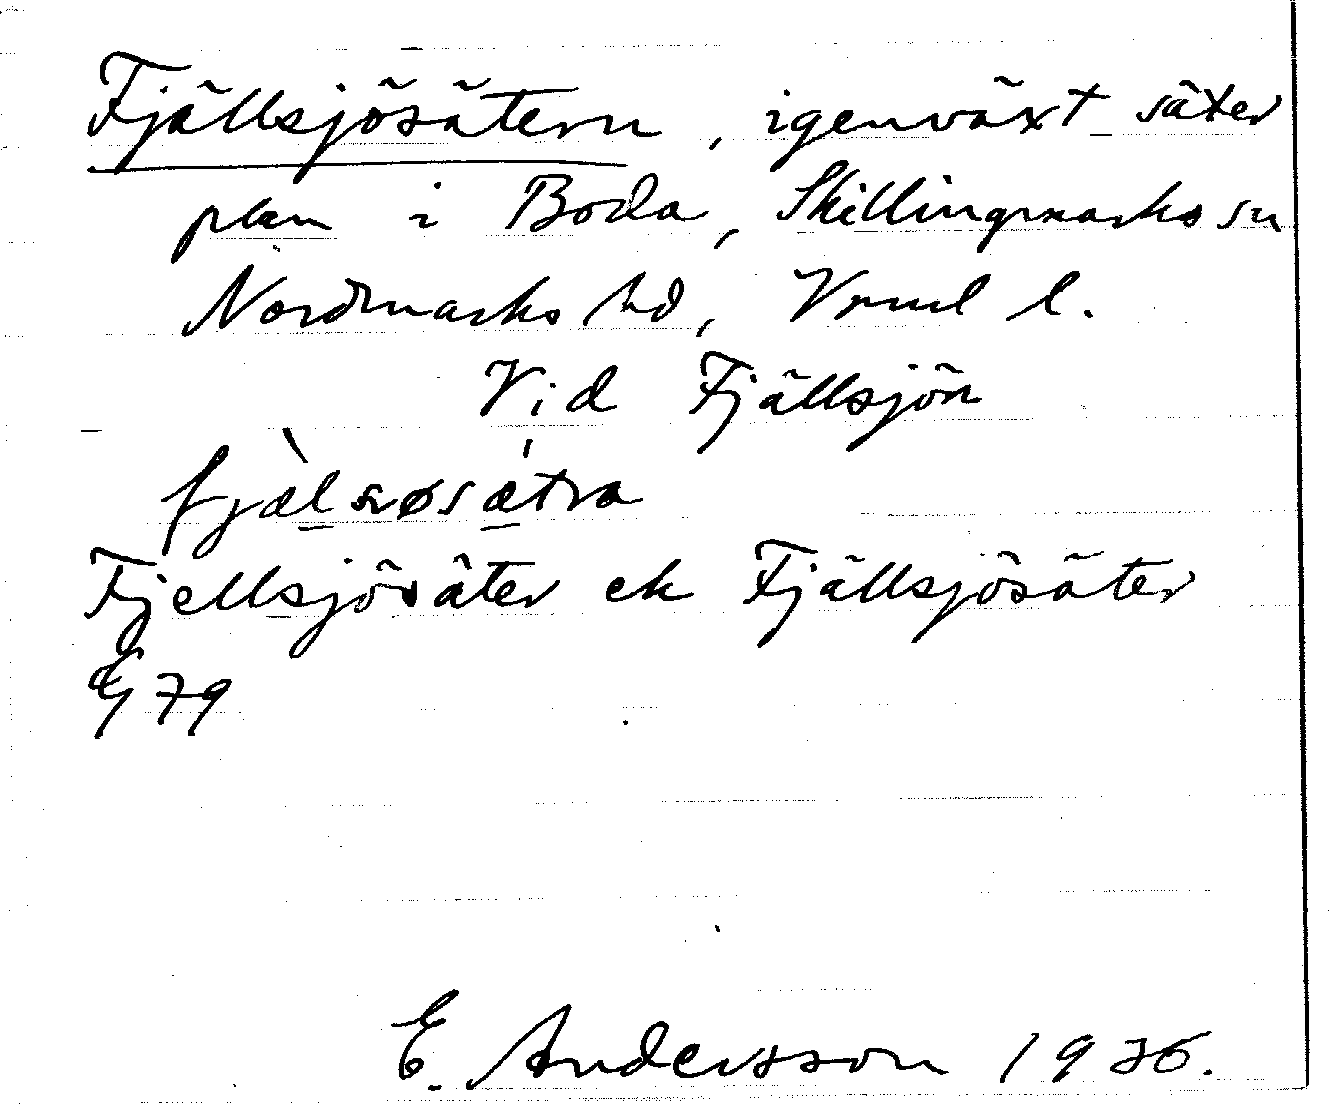 Fjällsjösätern, igenväxt säter
plan i Boda, Skillingmarks sn
Nordmarks hd, Vrml l.
Vid Fjällsjön
Fjellsjösäter ek Fjällsjösäter
G 79
E. Andersson 1936.